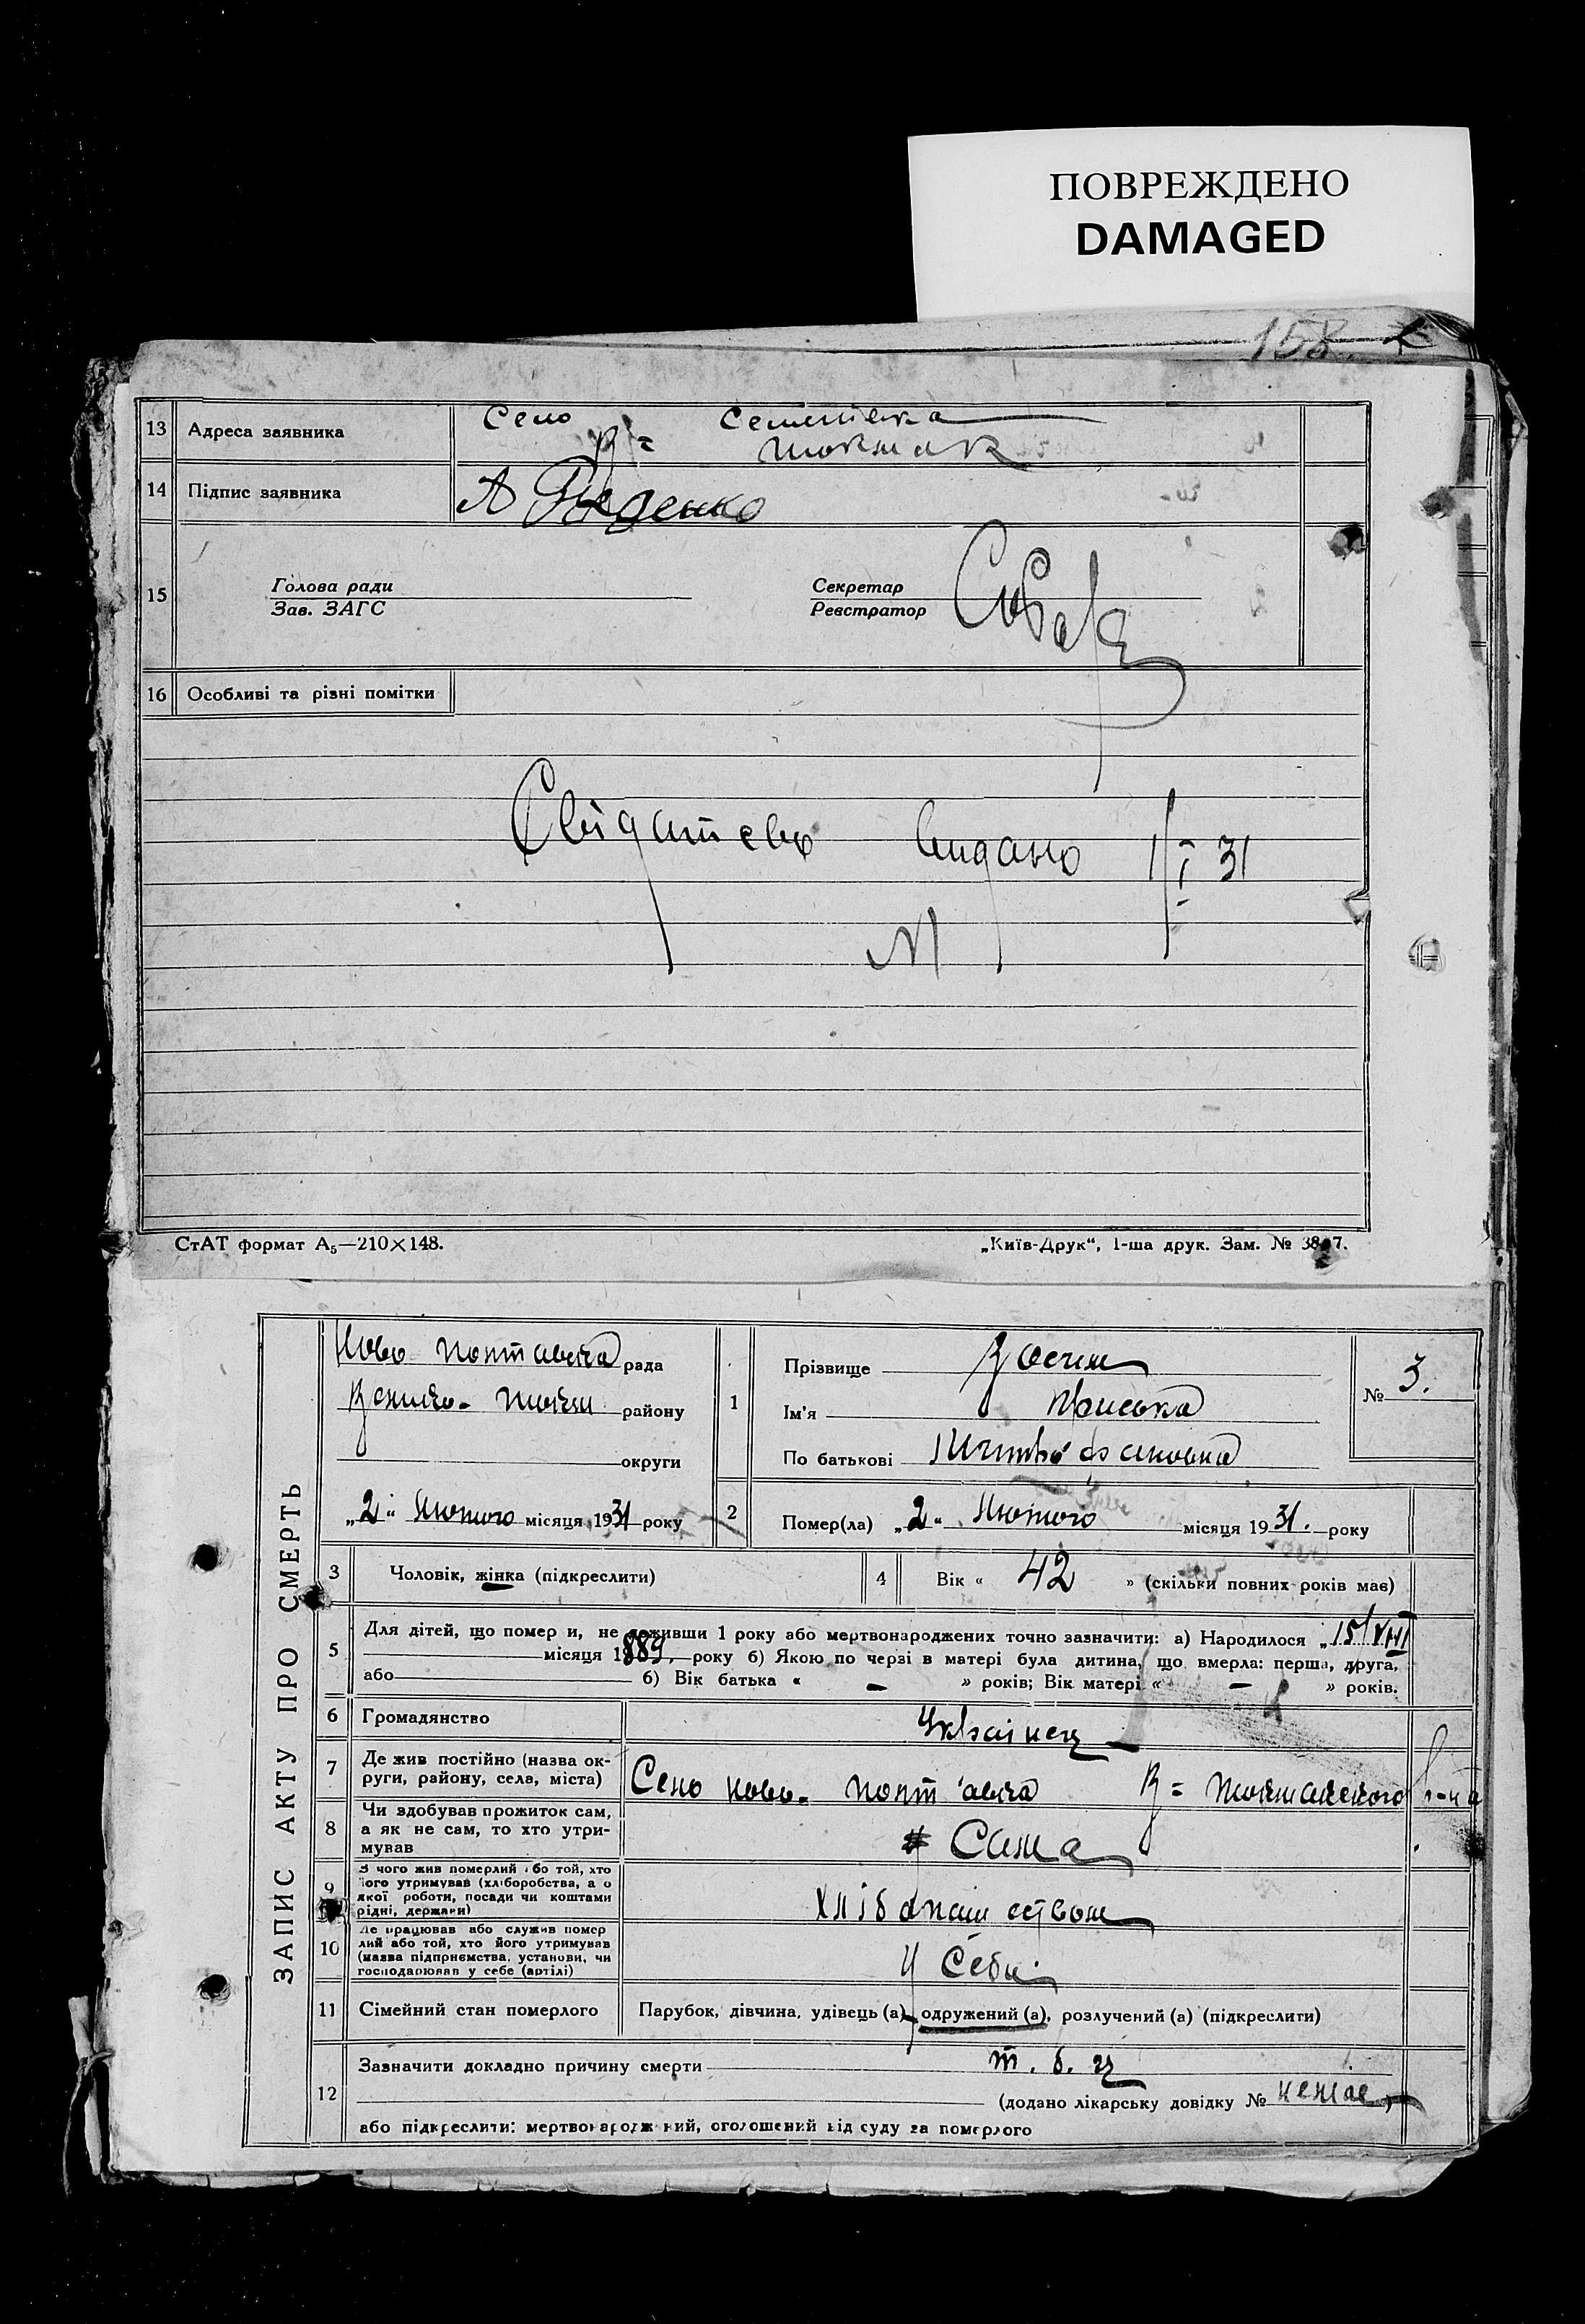 ПОВРЕЖДЕНО
DAMAGED
158
13 Адреса заявника Село Семенівка
В= Токмак
14 Підпис заявника А
15 Голова ради
Зав. ЗАГС
Секретар
Реєстратор
16 Особливі та різні помітки
Свідоцтво видано 1/I 31
СтАТ формат А₅—210×148.
„Київ-Друк“, 1-ша друк. Зам. № 38 7.
ЗАПИС АКТУ ПРО СМЕРТЬ
Ново Полтавска рада
Велико- Токм району
округи
„2“ Лютого місяця 1931 року
1 Прізвище
Ім'я
По батькові
№ 3.
2 Помер(ла) „2“ Лютого місяця 1931. року
3 Чоловік, жінка (підкреслити)
4 Вік « 42 » (скільки повних років має)
5 Для дітей, що помер и, не доживши 1 року або мертвонароджених точно зазначити: а) Народилося „15/VIII
місяця 1889. року б) Якою по черзі в матері була дитина, що вмерла: перша, друга,
або б) Вік батька « — » років; Вік матері « — » років.
6 Громадянство Українец
7 Де жив постійно (назва округи, району, села, міста) Село Ново- Полтавка В= Токмакского р-на
8 Чи здобував прожиток сам,
а як не сам, то хто утри-
мував Сама
9 З чого жив померлий або той, хто
його утримував (хліборобства, а о
якої роботи, посади чи коштами
рідні, держави)
10 Де працював або служив помер
лий або той, хто його утримував
(назва підприємства, установи, чи
господарював у себе (артілі) У Себе
11 Сімейний стан померлого Парубок, дівчина, удівець (а), одружений (а), розлучений (а) (підкреслити)
12 Зазначити докладно причину смерти т. б. ц
(додано лікарську довідку № немає)
або підкреслити: мертвонароджений, оголошений від суду за померлого